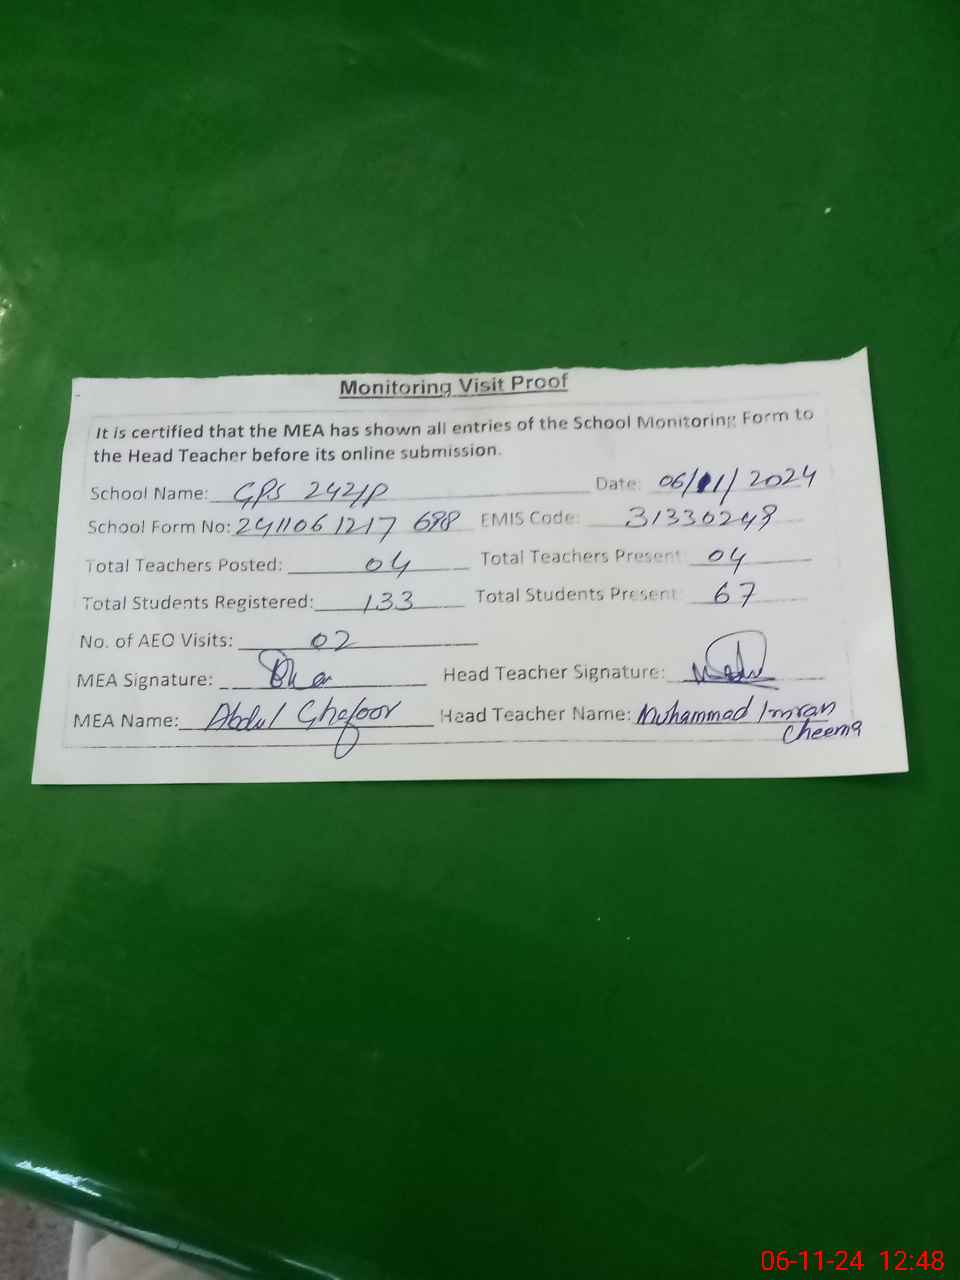 Monitoring Visit Proof
It is certified that the MEA has shown all entries of the School Monitoring Form to
the Head Teacher before its online submission.
School Name: GPS 242/P Date: 06/11/2024
School Form No: 241106 1217 698 EMIS Code: 31330249
Total Teachers Posted: 04 Total Teachers Present 04
Total Students Registered: 133 Total Students Present 67
No. of AEO Visits: 02
MEA Signature: Head Teacher Signature:
MEA Name: Abdul Ghafoor Head Teacher Name: Muhammad Imran
Cheema
06-11-24 12:48